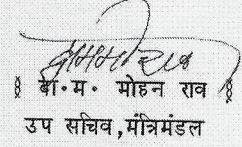 बा॰म॰ मोहन राव
उप सचिव,मंत्रिमंडल